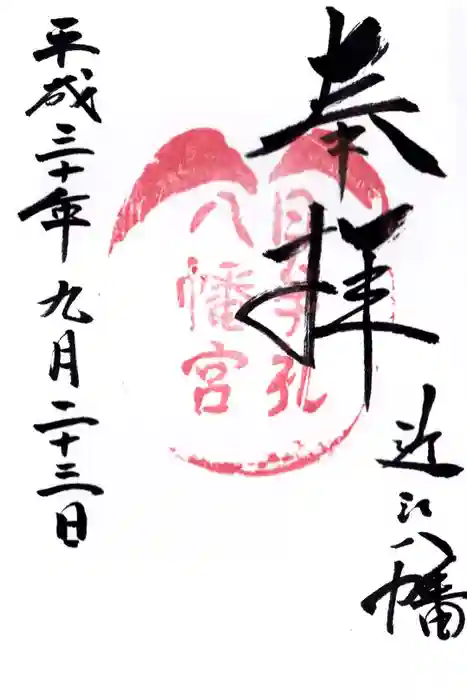 奉拝
近江八幡
日牟礼
八幡宮
平成三十年九月二十三日